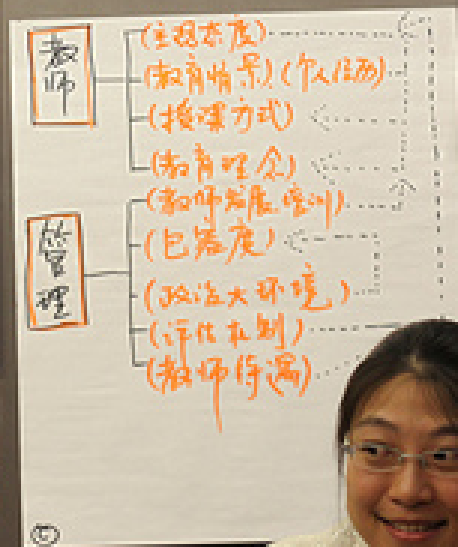 教师
(主观态度)
(教育情景)(个人经历)
(授课方式)
(教育理念)
(教师发展培训)
管理
(包容度)
(政治大环境)
(评估机制)
(教师待遇)